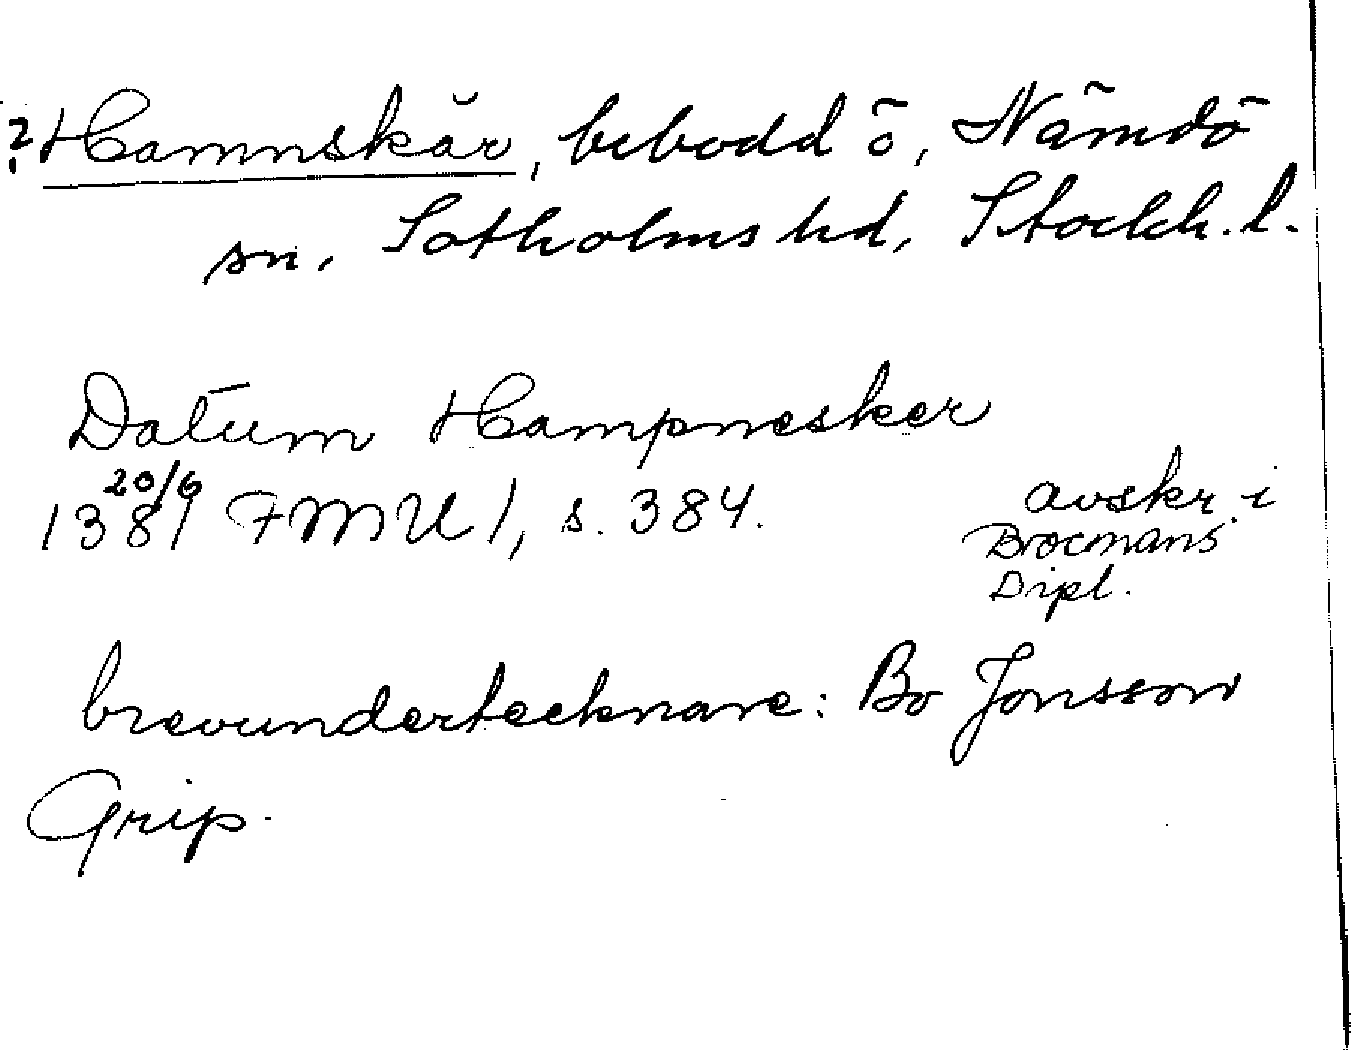 ? Hamnskär, bebodd ö, Nämdö
sn, Sotholms hd, Stockh. l.
Datum Hampnesker
20/6
1381 FMU 1, s. 384.
avskr. i
Brocmans
Dipl.
brevundertecknare: Bo Jonsson
Grip.